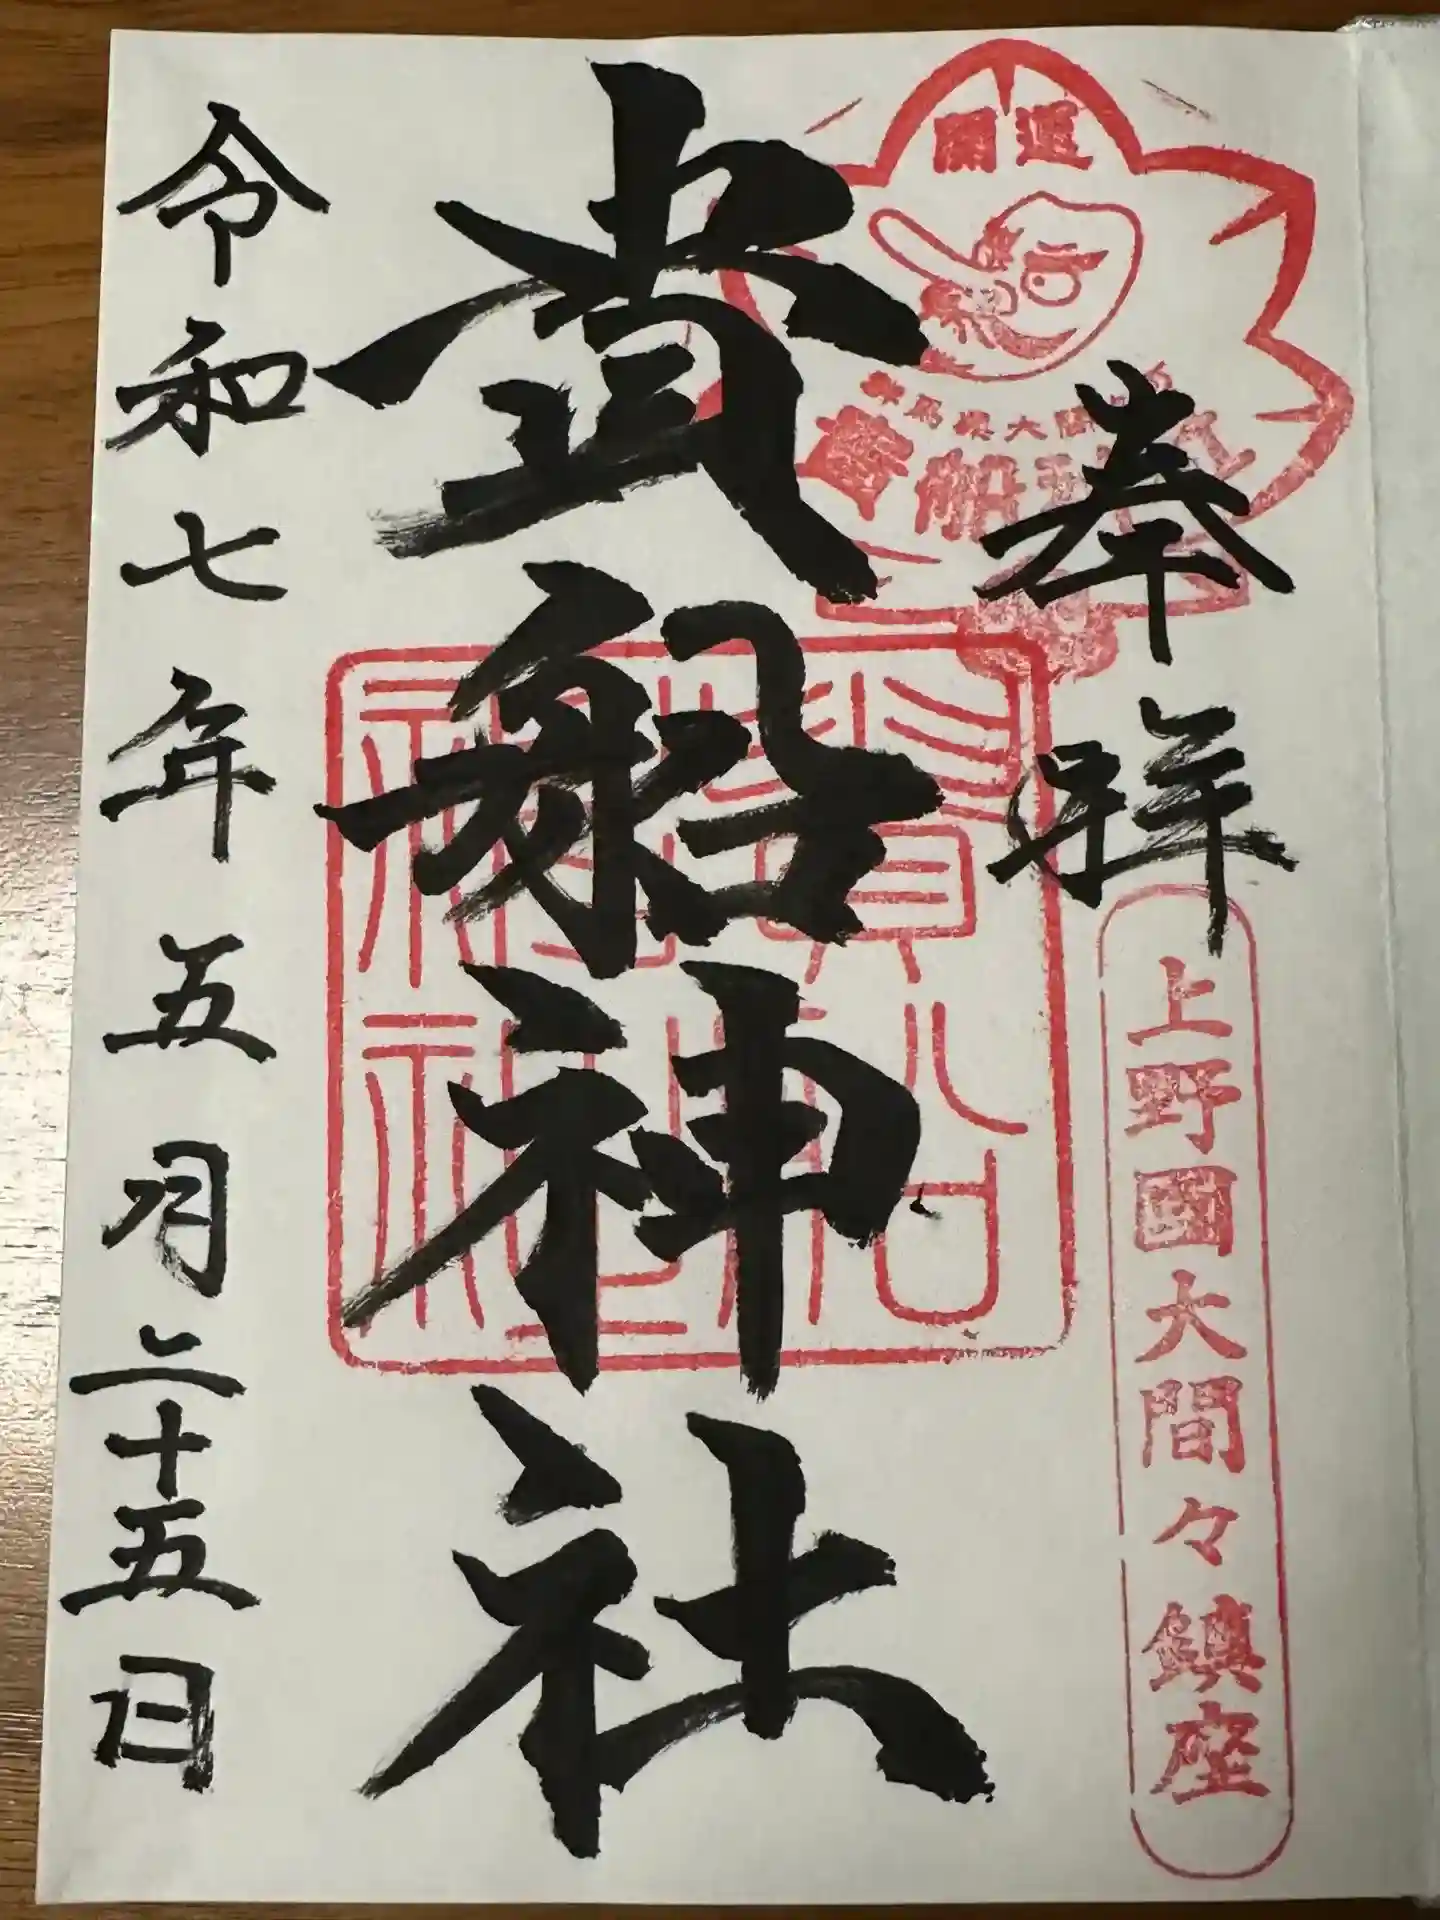 奉拝
開運
群馬県大間
貴船神社
上野國大間々鎮座
貴船神社
貴船
神社
令和七年五月二十五日